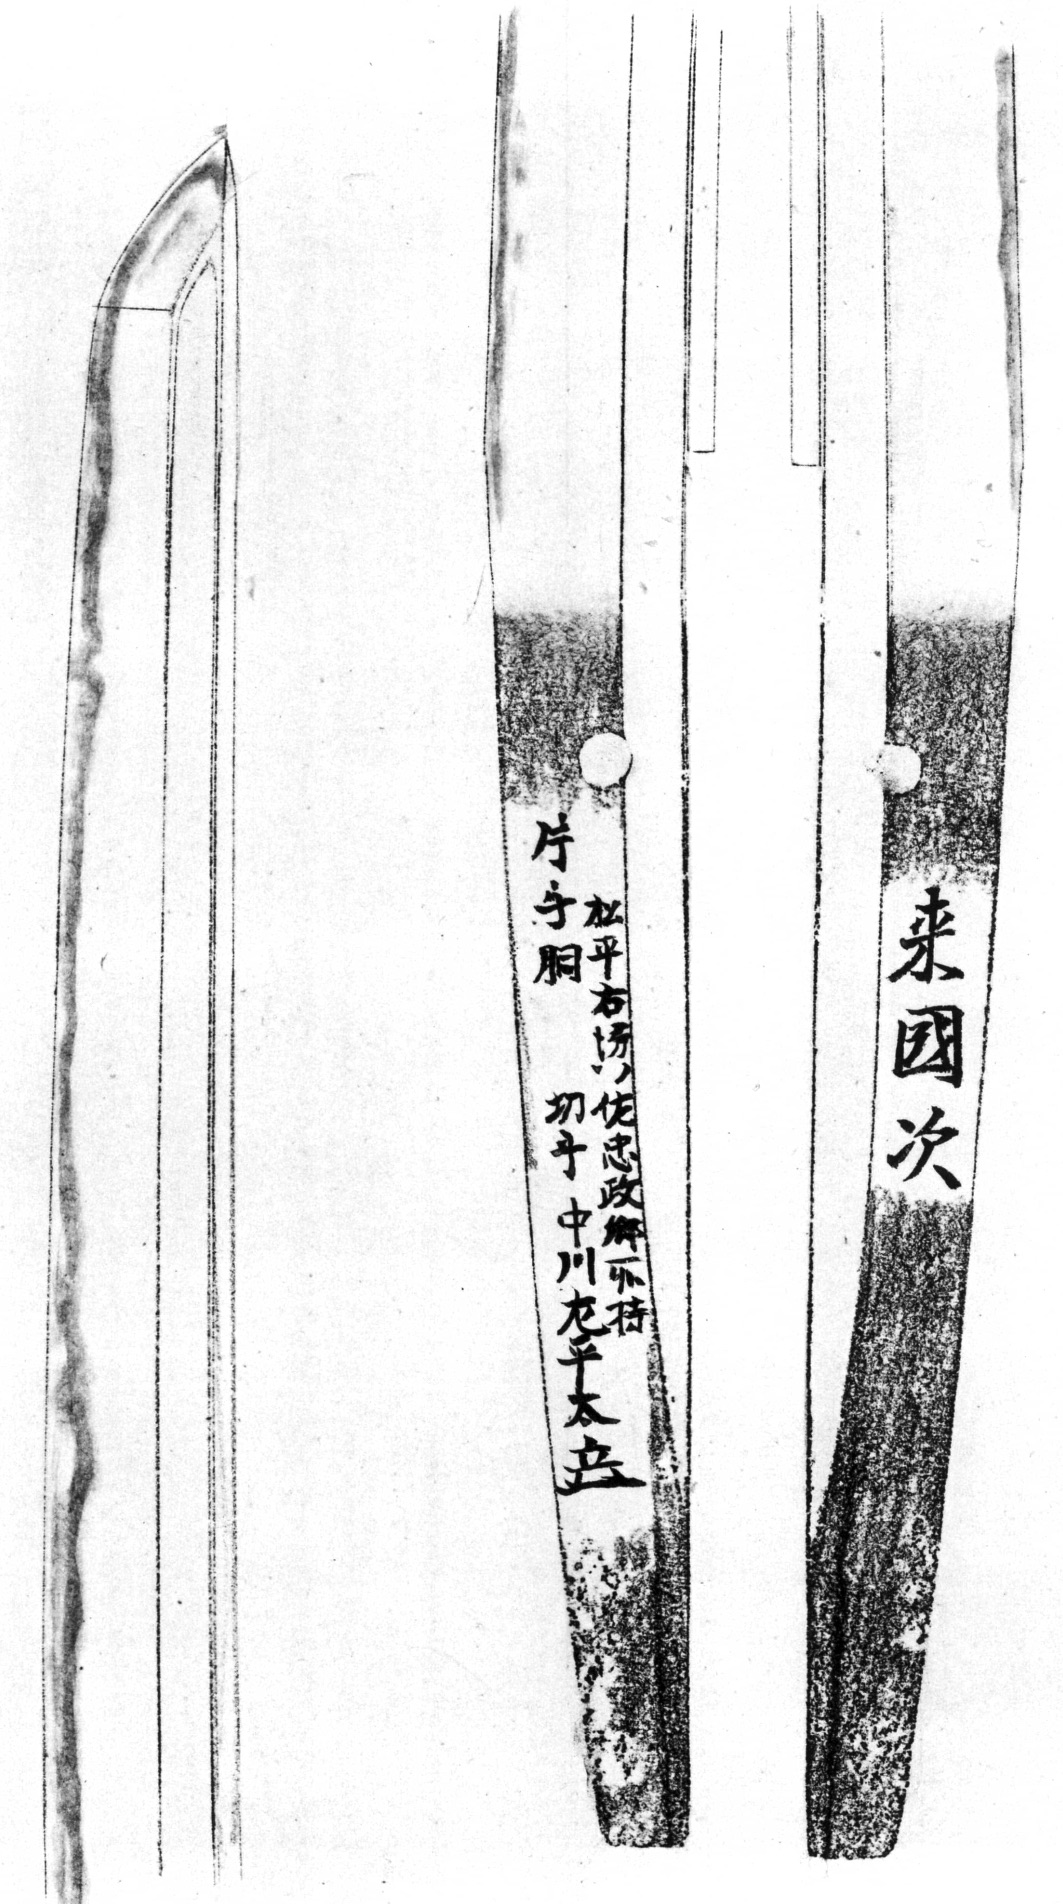 来國次
松平右場ツ佐忠政郷所持
片手胴 切手 中川左平太